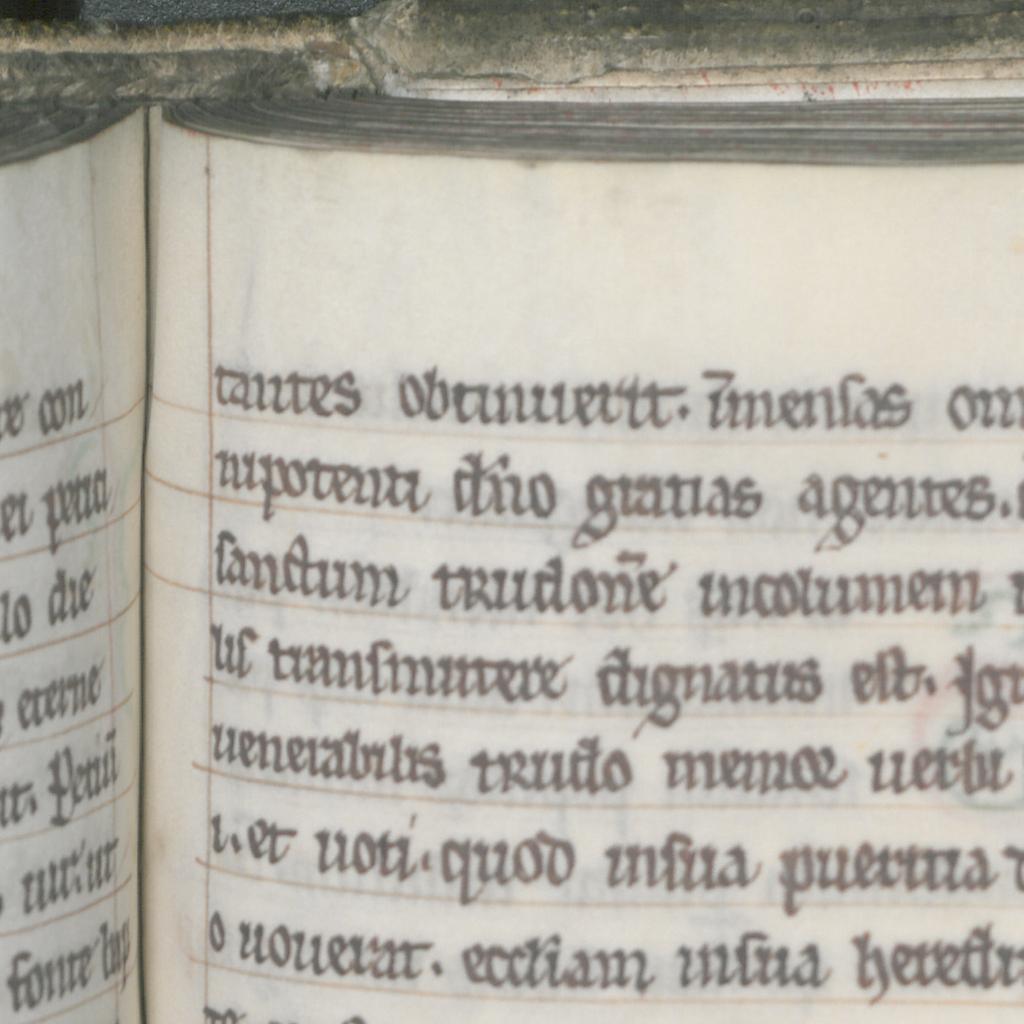 re con
ei petici
lo die
eterne
it. Petiit
iut. ut
fonte lug
tantes obtinuerūt. īmensas om
nipotenti dño gratias agentes.
sanctum trudonē incolumem
lis transmittere dignatus est. Igi
uenerabilis trudo memor uerbi
i. et uoti. quod insua pueritia
o uouerat. eccliam insua heredi